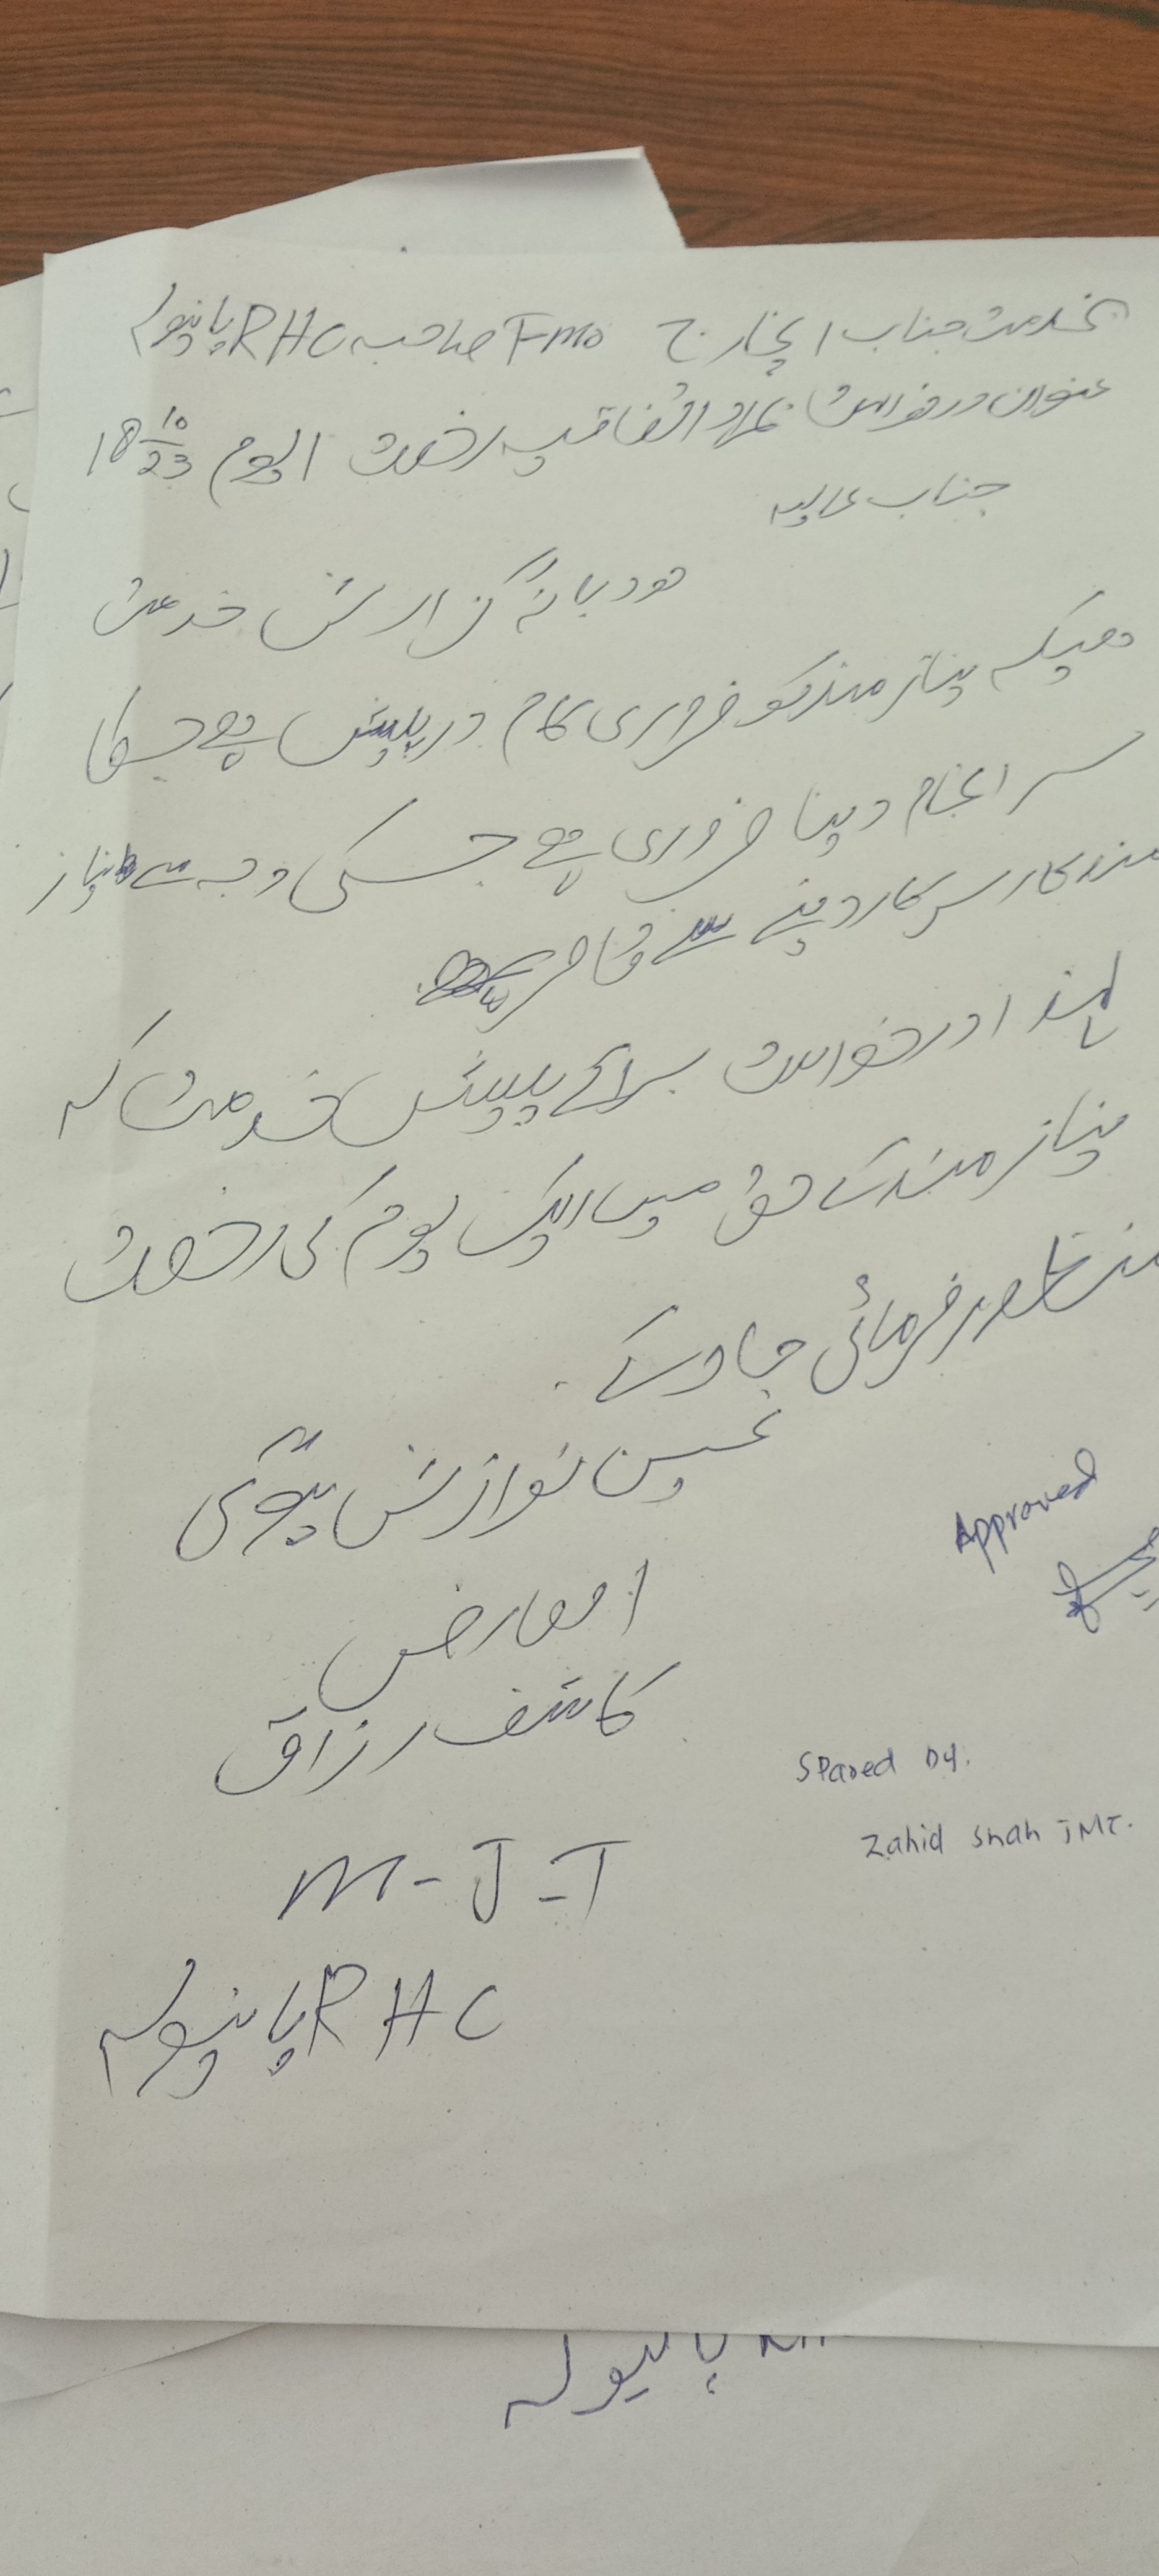 بخدمت جناب انچارج FMO صاحبہ RHC پانیولہ
عنوان درخواست بمراد اتفاقیہ رخصت ایوم 18 10/23
جناب عالیہ
مودبانہ گزارش خدمت
ہیکہ نیاز مند کو ضروری کام درپیش ہے جسکا
سر انجام دینا ضروری ہے جسکی وجہ سے نیاز
مند کار سرکار دینے سے قاصر ہے
لہذا درخواست برائے پیش خدمت کہ
نیاز مند کے حق میں ایک یوم کی رخصت
منظور فرمائی جاوے۔
عین نوازش ہوگی
العارض
کاشف رزاق
M-J-T
RHC پانیولہ
Approved
Spared by.
Zahid Shah JMT.
پانیولہ